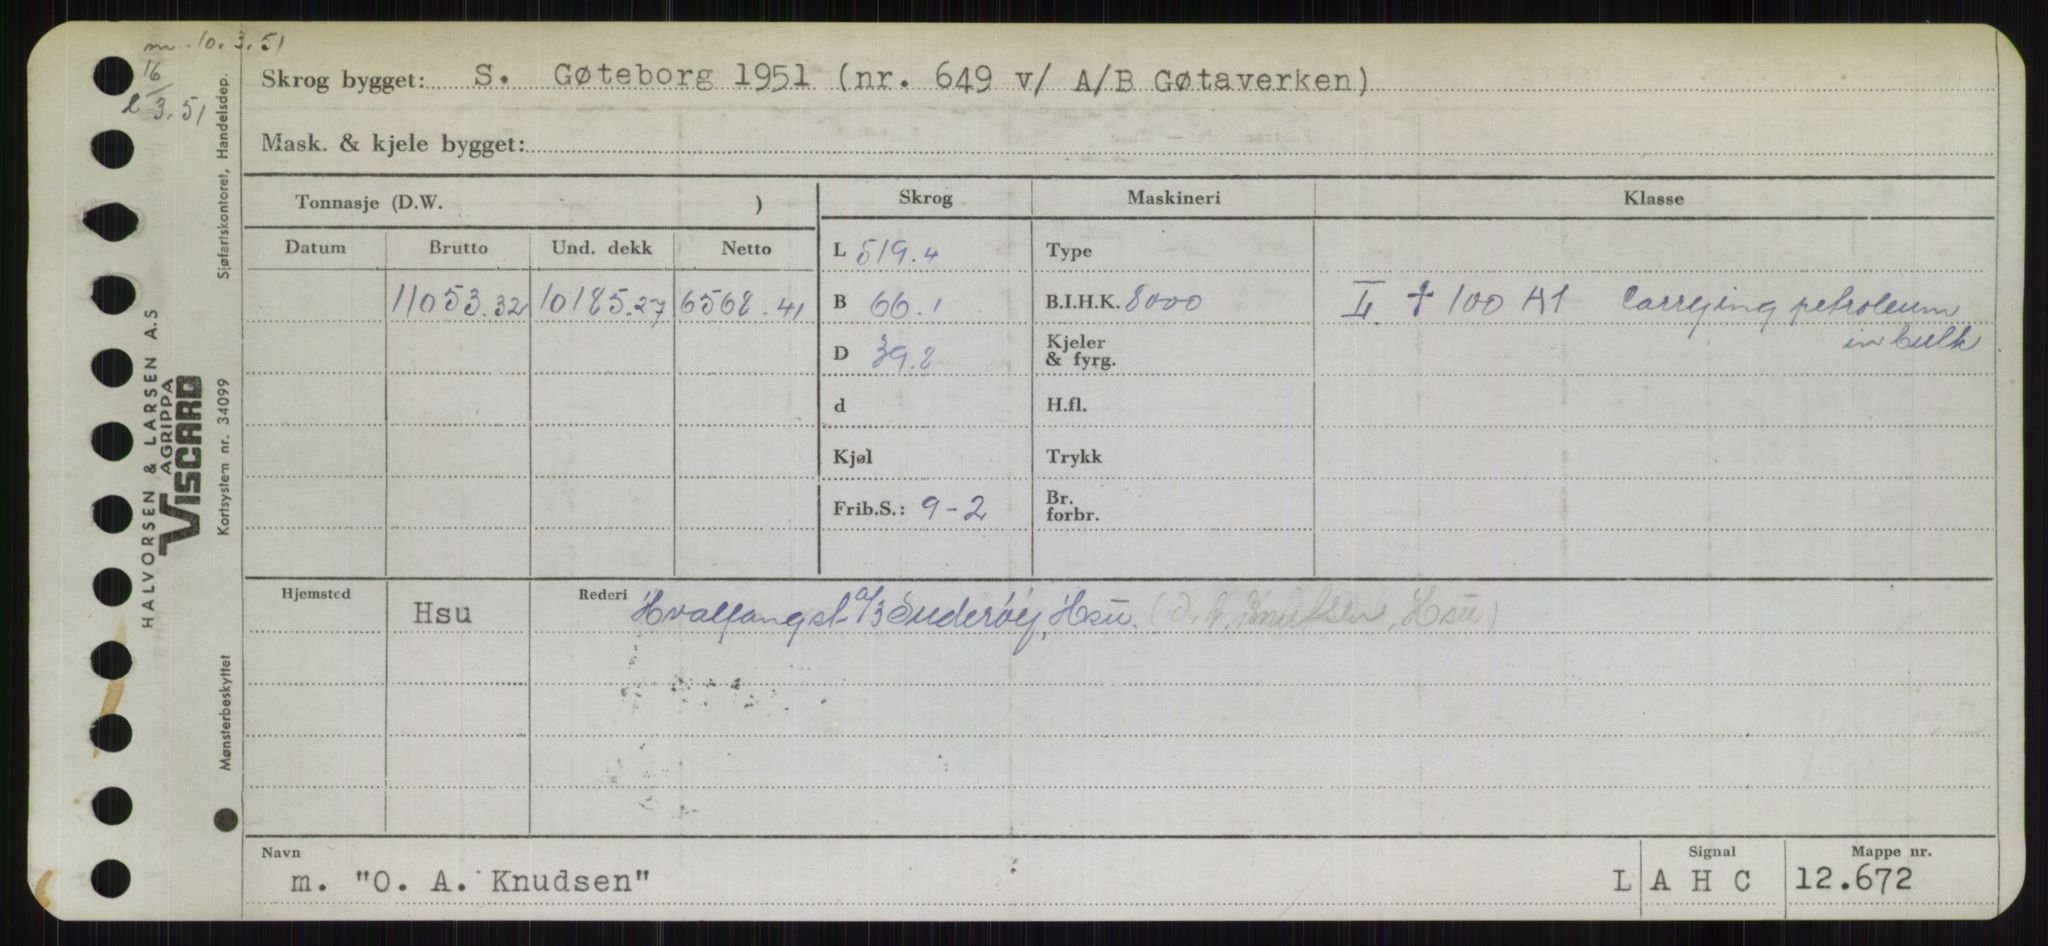 m. 10.3.51
16/3.51
Skrog bygget: S. Gøteborg 1951 (nr. 649 v/ A/B Gøtaverken)
Mask. & kjele bygget:
Tonnasje (D.W. ) Skrog Maskineri Klasse
Datum Brutto Und. dekk Netto L 519.4 Type
11053.32 10185.27 6568.41 B 66.1 B.I.H.K. 8000 100 A1 Carrying petroleum
in bulk
D 39.8 Kjeler
& fyrg.
d H.fl.
Kjøl Trykk
Frib.S.: 9-2 Br.
forbr.
Hjemsted Hsu Rederi Hvalfangst A/S Suderøy, Hsu. (Knutsen, Hsu)
Navn Signal Mappe nr.
m. "O. A. Knudsen" L A H C 12.672
HALVORSEN & LARSEN A.S
AGRIPPA
VISCARD
Mønsterbeskyttet Kortsystem nr. 34099 Sjøfartskontoret, Handelsdep.